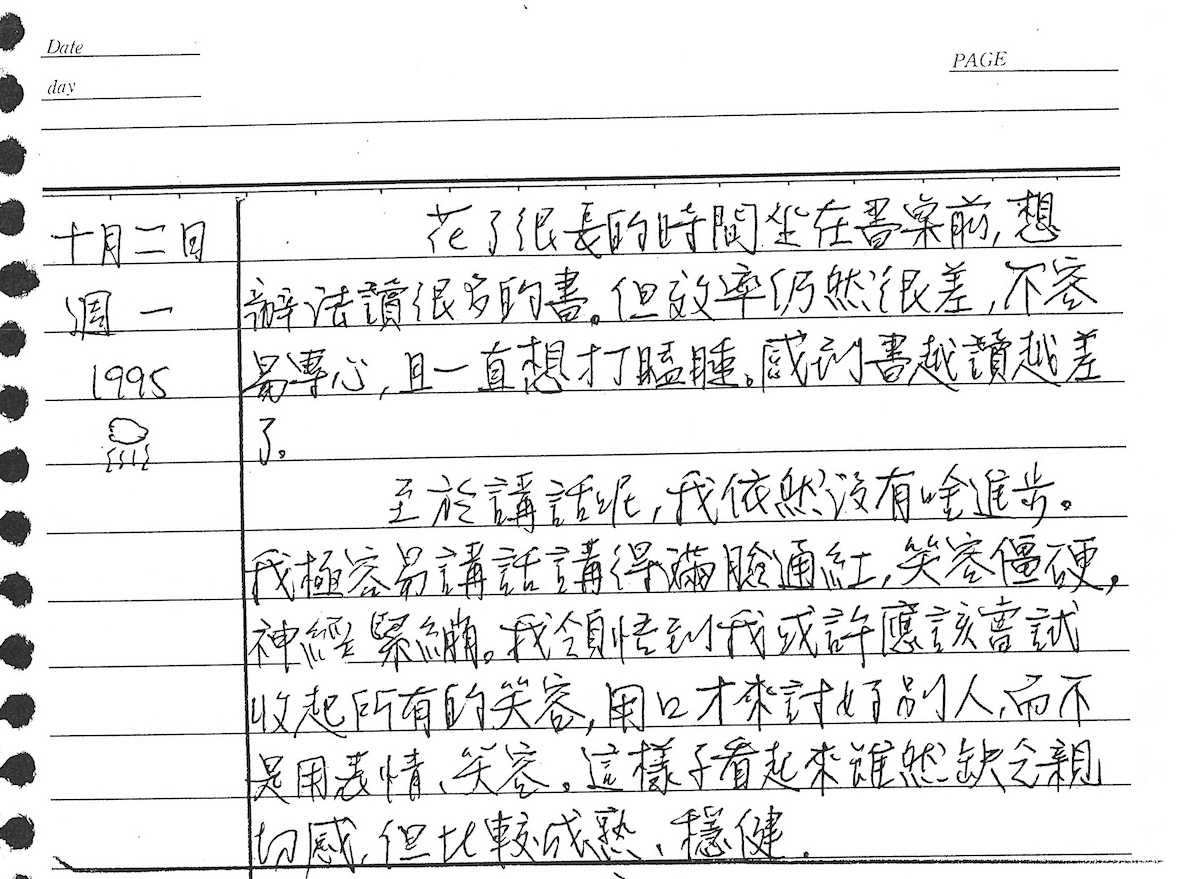 Date
day
PAGE
十月二日
週一
1995
花了很長的時間坐在書案前,想
辦法讀很多的書。但效率仍然很差,不容
易專心,且一直想打瞌睡。感到書越讀越差
了。
至於講話呢,我依然沒有啥進步。
我極容易講話講得滿臉通紅,笑容僵硬,
神經緊繃。我領悟到我或許應該嘗試
收起所有的笑容,用口才來討好別人,而不
是用表情、笑容。這樣子看起來雖然缺乏親
切感,但比較成熟、穩健.